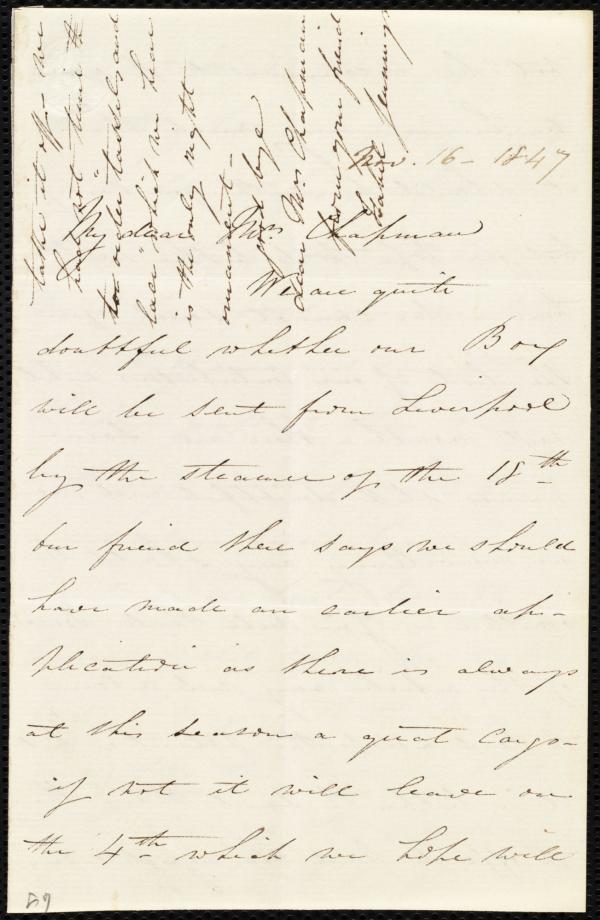 Nov. 16 - 1847
My dear Mrs Chapman
We are quite
doubtful whether our Box
will be sent from Liverpool
by the steamer of the 18th
our friend there says we should
have made an earlier ap-
plication as there is always
at this season a great cargo -
if not it will leave on
the 4th which we hope will
take it off - we
had not time to
order tassels and
lace which we hear
is the only right
ornament -
good bye
dear Mrs Chapman
from your friend
Isabel Jennings